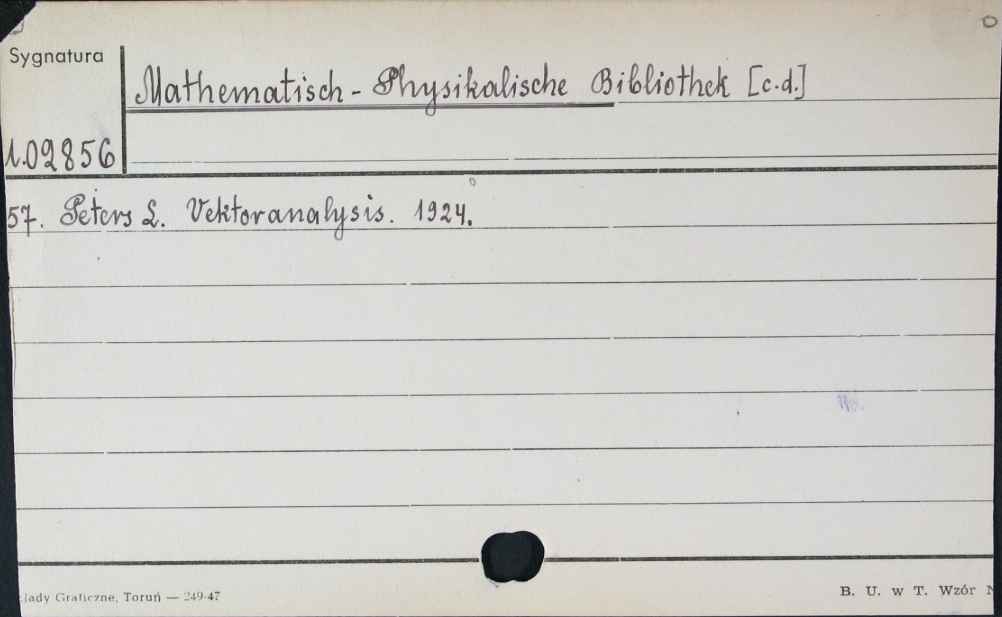 Sygnatura
Mathematisch-Physikalische Bibliothek [c.d.]
1.02856
57. Peters L. Vektoranalysis. 1924.
łady Graficzne, Toruń — 249-47
B. U. w T. Wzór N